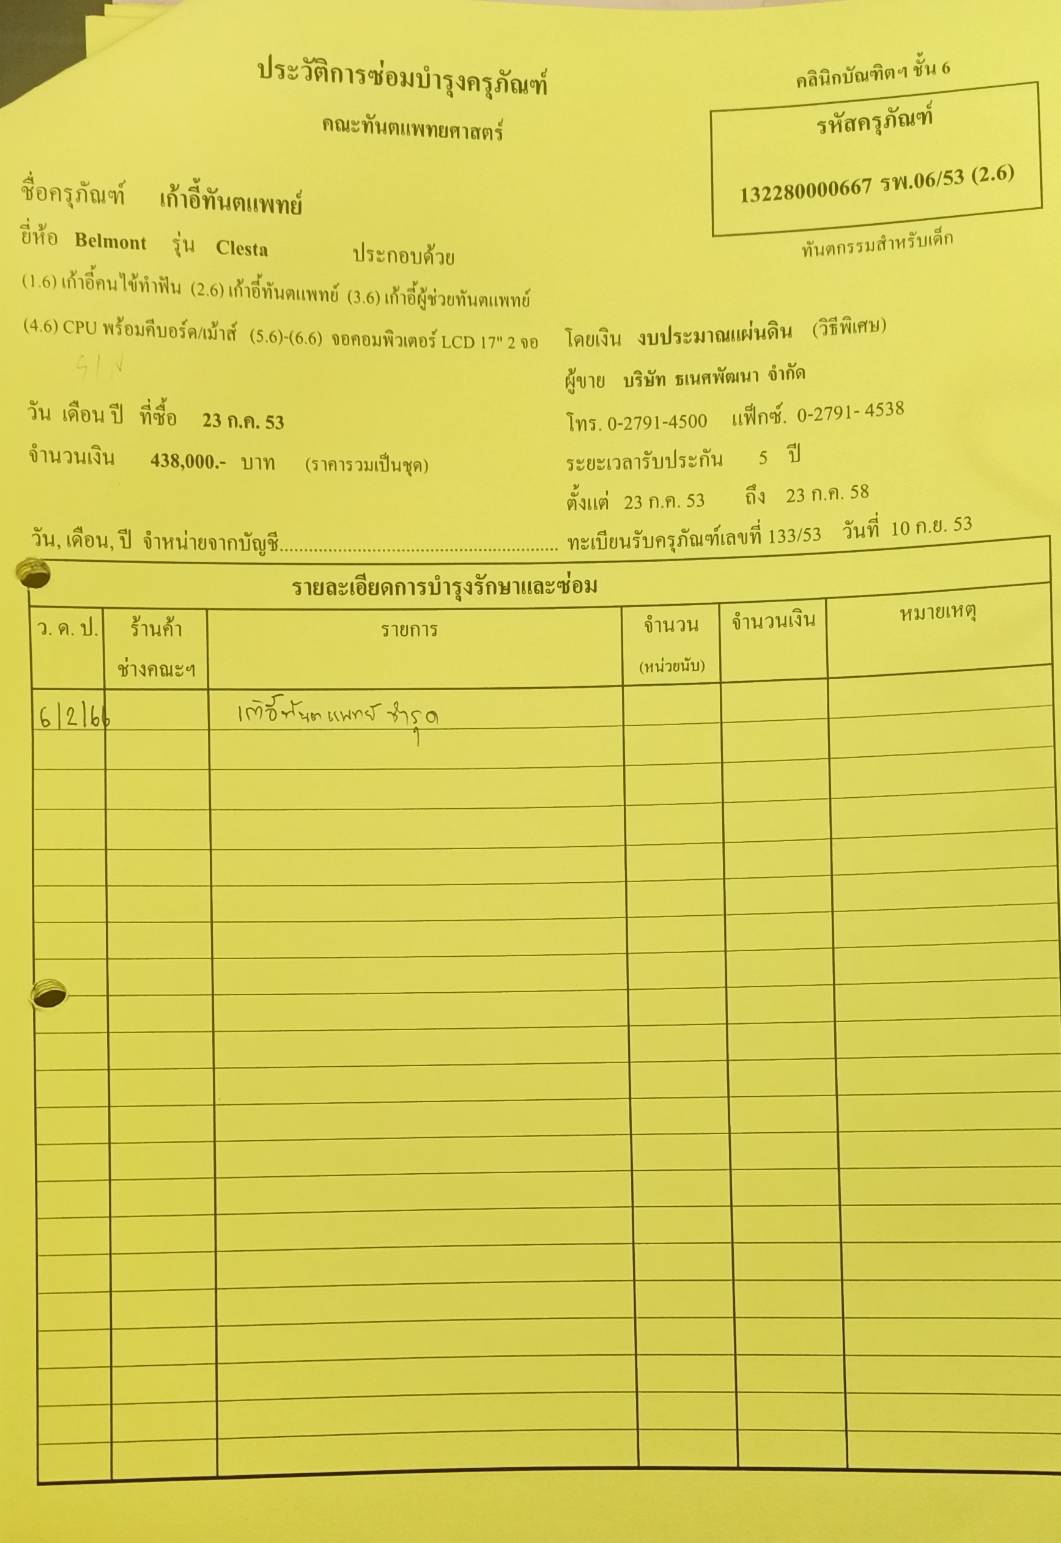 ประวัติการซ่อมบำรุงครุภัณฑ์
คลินิกบัณฑิตฯ ชั้น 6
คณะทันตแพทยศาสตร์
รหัสครุภัณฑ์
132280000667 รพ.06/53 (2.6)
ชื่อครุภัณฑ์ เก้าอี้ทันตแพทย์
ทันตกรรมสำหรับเด็ก
ยี่ห้อ Belmont รุ่น Clesta ประกอบด้วย
(1.6) เก้าอี้คนไข้ทำฟัน (2.6) เก้าอี้ทันตแพทย์ (3.6) เก้าอี้ผู้ช่วยทันตแพทย์
(4.6) CPU พร้อมคีบอร์ด/เม้าส์ (5.6)-(6.6) จอคอมพิวเตอร์ LCD 17" 2 จอ โดยเงิน งบประมาณแผ่นดิน (วิธีพิเศษ)
ผู้ขาย บริษัท ธเนศพัฒนา จำกัด
วัน เดือน ปี ที่ซื้อ 23 ก.ค. 53 โทร. 0-2791-4500 แฟ็กซ์. 0-2791- 4538
จำนวนเงิน 438,000.- บาท (ราคารวมเป็นชุด) ระยะเวลารับประกัน 5 ปี
ตั้งแต่ 23 ก.ค. 53 ถึง 23 ก.ค. 58
วัน, เดือน, ปี จำหน่ายจากบัญชี........................................ ทะเบียนรับครุภัณฑ์เลขที่ 133/53 วันที่ 10 ก.ย. 53
รายละเอียดการบำรุงรักษาและซ่อม
ว. ด. ป. ร้านค้า รายการ จำนวน จำนวนเงิน หมายเหตุ
ช่างคณะฯ (หน่วยนับ)
6/2/66 เก้าอี้ทันตแพทย์ ชำรุด